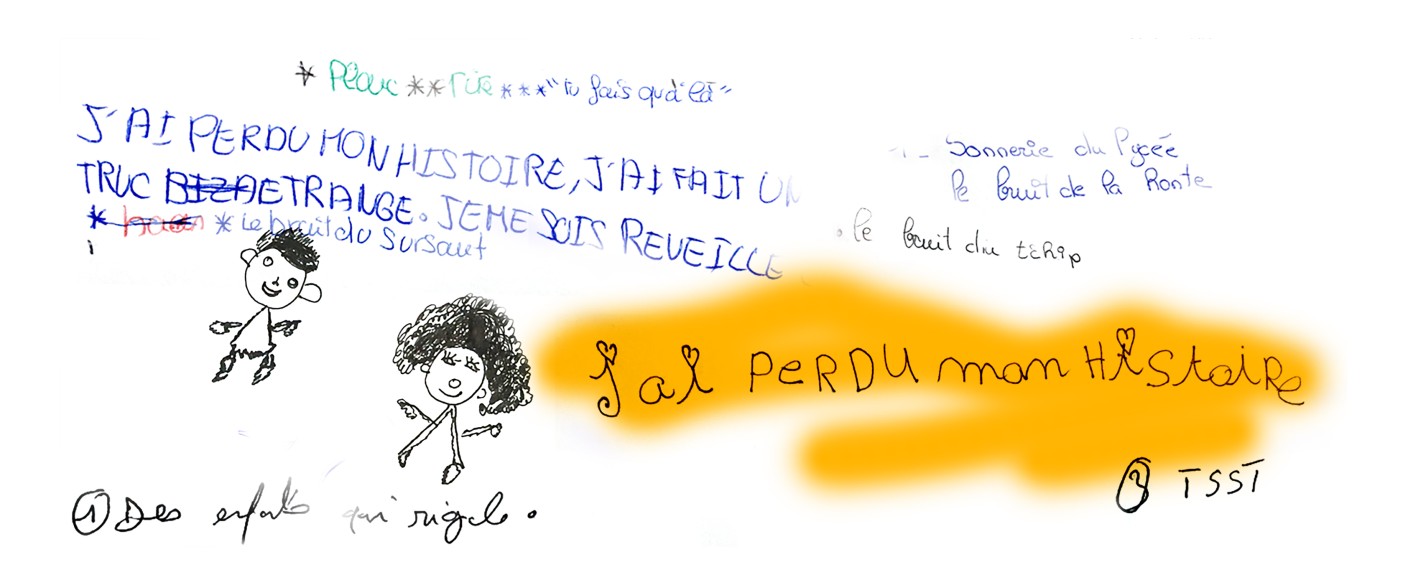 * Pleure ** rire *** "tu fais quoi là"
J'AI PERDU MON HISTOIRE, J'AI FAIT UN
TRUC ETRANGE. JE ME SUIS REVEILLE
* Le bruit du sursaut
1 - Sonnerie du lycée
le bruit de la honte
. le bruit du tchip
j'ai PERDU mon HIStoiRe
① Des enfants qui rigole.
TSST